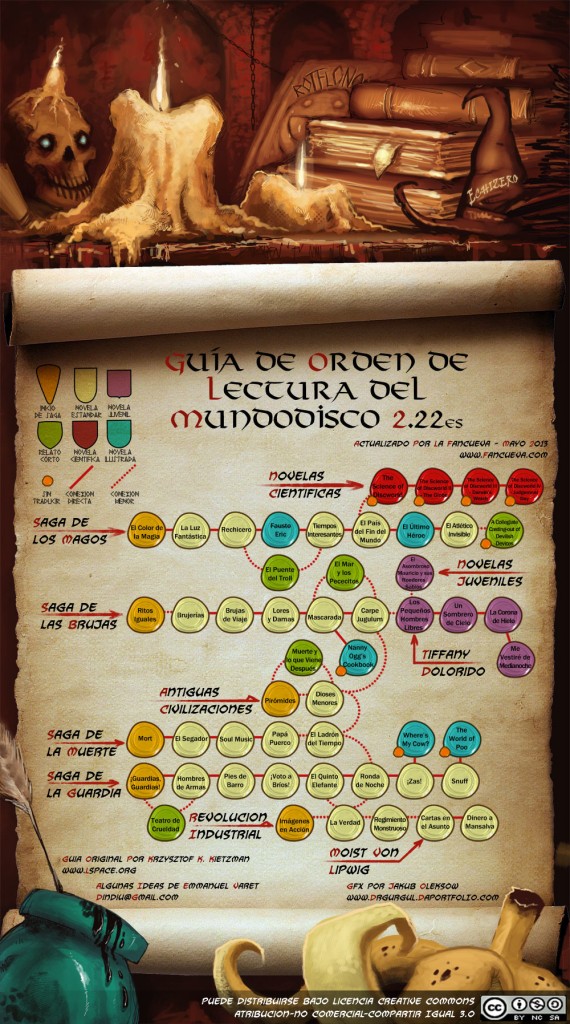 ECHIZERO
Guía de Orden de
Lectura del
Mundodisco 2.22es
Actualizado por La Fancueva - Mayo 2013
www.Fancueva.com
Inicio de Saga
Novela Estandar
Novela Juvenil
Relato Corto
Novela Cientifica
Novela Ilustrada
Sin Traducir
Conexion Directa
Conexion Menor
Novelas
Cientificas
The Science of Discworld
Saga de
los Magos
El Color de la Magia
La Luz Fantástica
Rechicero
Fausto Eric
Tiempos Interesantes
El País del Fin del Mundo
El Último Héroe
El Atlético Invisible
A Collegiate Casting-out of Devilish Devices
El Puente del Troll
El Mar y los Pececitos
El Asombroso Mauricio y sus Roedores Sabios
Novelas
Juveniles
Saga de
las Brujas
Ritos Iguales
Brujerías
Brujas de Viaje
Lores y Damas
Mascarada
Carpe Jugulum
Los Pequeños Hombres Libres
Un Sombrero de Cielo
La Corona de Hielo
Muerte y lo que Viene Después
Nanny Ogg's Cookbook
Tiffany
Dolorido
Me Vestiré de Medianoche
Antiguas
Civilizaciones
Pirómides
Dioses Menores
Saga de
la Muerte
Mort
El Segador
Soul Music
Papá Puerco
El Ladrón del Tiempo
Where's My Cow?
The World of Poo
Saga de
la Guardia
¡Guardias, Guardias!
Hombres de Armas
Pies de Barro
¡Voto a Bríos!
El Quinto Elefante
Ronda de Noche
¡Zas!
Snuff
Teatro de Crueldad
Revolucion
Industrial
Imágenes en Acción
La Verdad
Regimiento Monstruoso
Cartas en el Asunto
Dinero a Mansalva
Moist Von
Lipwig
Guia Original por Krzysztof K. Kietzman
www.Lspace.org
Algunas Ideas de Emmanuel Varet
Dindiu@Gmail.com
GFX por Jakub Oleksow
www.Drgurgul.Daportfolio.com
Puede distribuirse bajo licencia Creative Commons
Atribucion-No Comercial-Compartir Igual 3.0
cc
BY NC SA